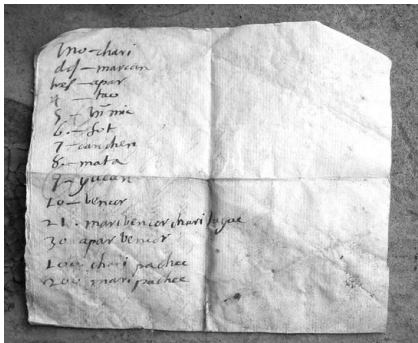 Uno – chari
dos – marcan
tres – apar
4 – tao
5. – himic
6. – sut
7 – canchen
8. – mata
9 – yucan
10 – bencor
21. maribencor chari tayac
30 apar bencor
100 chari pachac
200 mari pachac